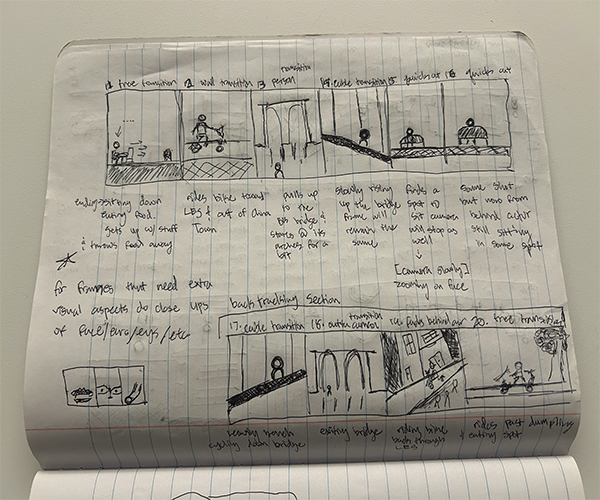 11 tree transition 12 wall transition 13 transition person 14. cable transition 15 quick cut 16 quick cut
ending sitting down
eating food.
gets up w/ stuff
& throws food away
rides bike toward
LES & out of China
Town
pulls up
to the
bridge &
stares @ its
arches for a
bit
slowly rising
up the bridge
frame will
remain the
same
finds a
spot to
sit camera
will stop as
well
[camera slowly]
zooming on face
same shot
but now from
behind actor
still sitting
in same spot
for frames that need extra
visual aspects do close ups
of face/ears/eyes/etc
back tracking section
17. cable transition 18. transition 20. tree transition
cycling down bridge
exiting bridge
riding bike
back through
LES
rides past dumpling
& eating spot